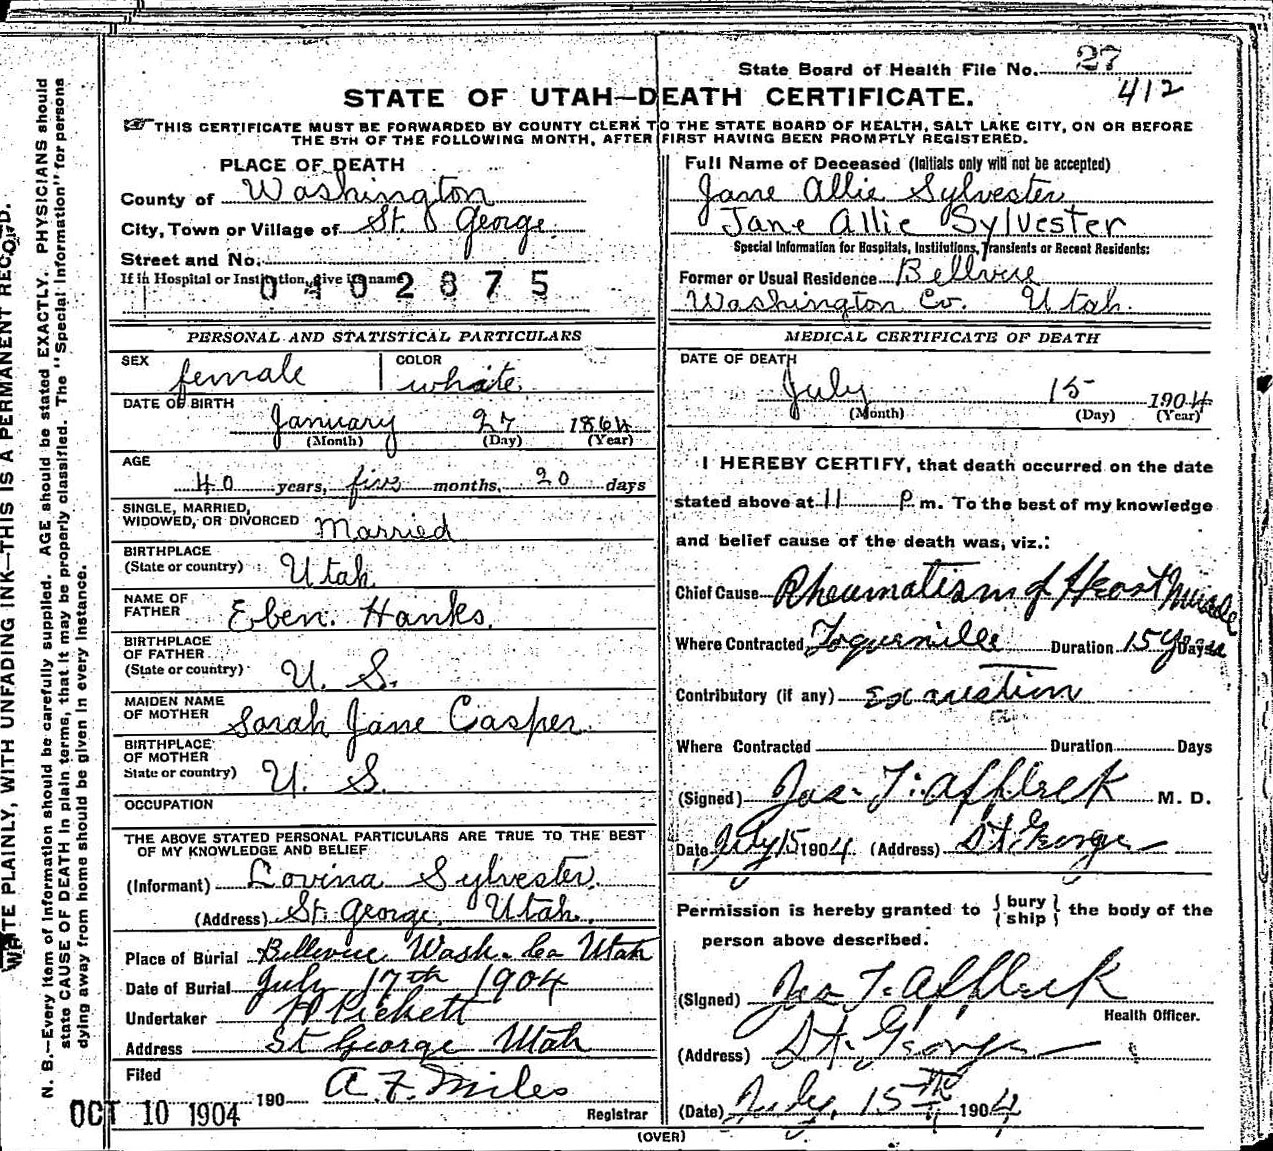 State Board of Health File No. 27
412
STATE OF UTAH—DEATH CERTIFICATE.
THIS CERTIFICATE MUST BE FORWARDED BY COUNTY CLERK TO THE STATE BOARD OF HEALTH, SALT LAKE CITY, ON OR BEFORE
THE 5TH OF THE FOLLOWING MONTH, AFTER FIRST HAVING BEEN PROMPTLY REGISTERED.
PLACE OF DEATH
County of Washington
City, Town or Village of St. George
Street and No.
If in Hospital or Institution, give its name
0 4 0 2 8 7 5
PERSONAL AND STATISTICAL PARTICULARS
SEX female COLOR white
DATE OF BIRTH
January 27 1864
(Month) (Day) (Year)
AGE
40 years, five months, 20 days
SINGLE, MARRIED,
WIDOWED, OR DIVORCED Married
BIRTHPLACE
(State or country) Utah
NAME OF
FATHER Eben. Hanks.
BIRTHPLACE
OF FATHER
(State or country) U. S.
MAIDEN NAME
OF MOTHER Sarah Jane Casper.
BIRTHPLACE
OF MOTHER
State or country) U. S.
OCCUPATION
THE ABOVE STATED PERSONAL PARTICULARS ARE TRUE TO THE BEST
OF MY KNOWLEDGE AND BELIEF
(Informant) Lovina Sylvester.
(Address) St. George, Utah.
Place of Burial Bellevue Wash. Co Utah
Date of Burial July 17th 1904
Undertaker Pickett
Address St George Utah
Filed
OCT 10 1904 190 A. F. Miles
Registrar
Full Name of Deceased (Initials only will not be accepted)
Jane Allie Sylvester
Jane Allie Sylvester
Special Information for Hospitals, Institutions, Transients or Recent Residents:
Former or Usual Residence Bellvue
Washington Co. Utah.
MEDICAL CERTIFICATE OF DEATH
DATE OF DEATH
July 15 1904
(Month) (Day) (Year)
I HEREBY CERTIFY, that death occurred on the date
stated above at 11 P m. To the best of my knowledge
and belief cause of the death was, viz.:
Chief Cause Rheumatism of Heart Muscle
Where Contracted Toquerville Duration 15 Years Days
Contributory (if any) Exaustion
Where Contracted Duration Days
(Signed) Jas. T. Affleck M. D.
Date July 15 1904. (Address) St George
Permission is hereby granted to { bury / ship } the body of the
person above described.
(Signed) Jas T. Affleck
Health Officer.
(Address) St. George
(Date) July, 15th 1904
(OVER)
WRITE PLAINLY, WITH UNFADING INK—THIS IS A PERMANENT RECORD.
N. B.—Every item of information should be carefully supplied. AGE should be stated EXACTLY. PHYSICIANS should
state CAUSE OF DEATH in plain terms, that it may be properly classified. The "Special Information" for persons
dying away from home should be given in every instance.